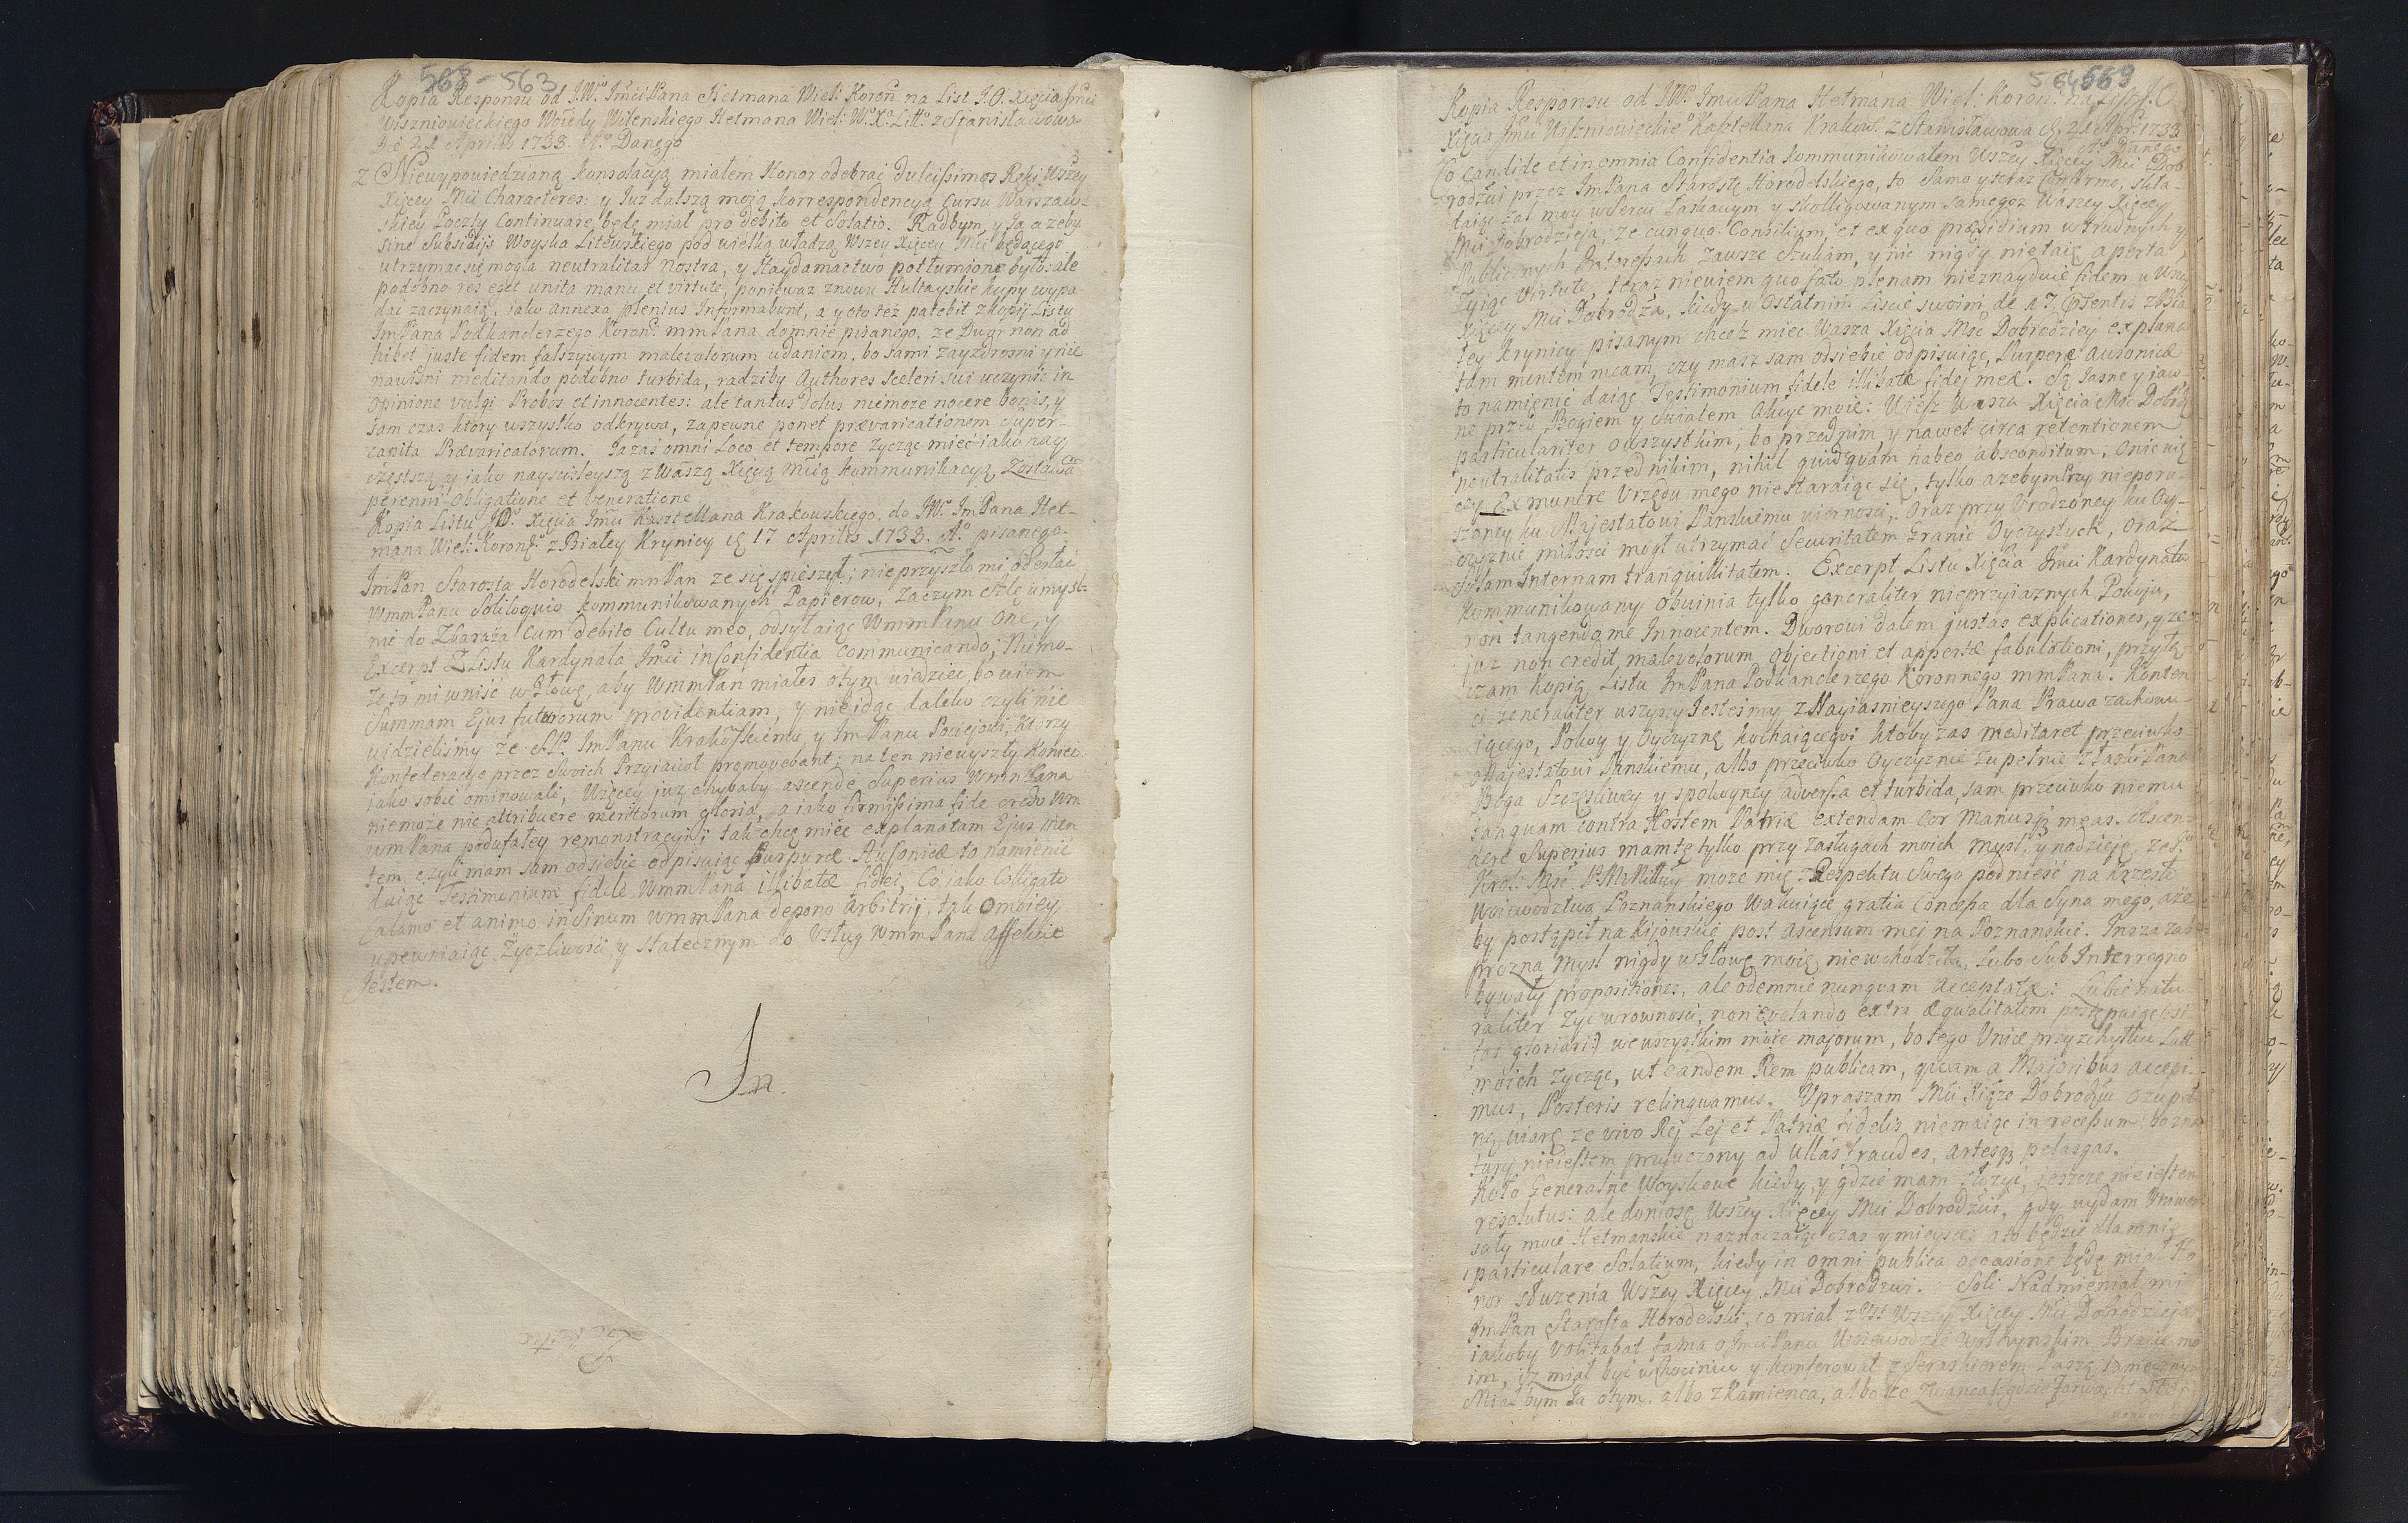 568 - 563
Kopia Responsu od J.Wo. Jmci Pana Hetmana Wiel: Koron: na List J.O. Xięcia Jmci
Wiszniowieckiego Woiedy Wilenskiego Hetmana Wiel: W. X. Litto. z Stanisławowa
Die 21 Aprilis 1733. Ao. Danego
Z Niewypowiedzianą konsolacyą miałem Honor odebrać dulcissimos Ręki Wszey
Xięcey Mci Characteres: y Iuz dalszą moią korrespondencyą Cursu Warszaw-
skiey Poczty Continuare będę miał pro debito et Solatio. Radbym y Ja azeby
sine Subsidijs Woyska Litewskiego pod wielką władzą Wszey Xięcey Mci będącego
utrzymac się mogła neutralitas nostra, y Haydamactwo potłumione było: ale
podobno res eget unita manu et virtute, poniewaz znowu Hultayskie kupy wypa-
dać zaczynaią, iako annexa plenius Informabunt, a y oto też patebit z kopij Listu
Jm Pana Podkanclerzego Koron: mm Pana do mnie pisanego, ze Dwor non ad
hibet juste fidem fałszywym malevolorum udaniem, bo sami zayzdrosni y nie
nawisni meditando podobno turbida, radziby Authores sceleri sui uczynic in
opinione vulgi Probos et innocentes: ale tantus dolus niemoze nocere bonis, y
sam czas ktory wszystko odkrywa, zapewne ponet praevaricationem super-
capita Praevaricatorum. Ja zaś omni Loco et tempore zycząc mieć iako nay
częstszą, y iako nayscisleyszą z Waszą Xięcą Mcią kommunikacyą, Zostawa
perenni obligatione et veneratione
Kopia Listu JO. Xięcia Jmci Kasztellana Krakowskiego, do JW. Jm Pana Het-
mana Wiel: Koronego z Białey Krynicy d. 17 Aprilis 1733. Ao. pisanego.
Jm Pan Starosta Horodelski mm Pan ze się spieszył; nie przyszło mi odesłać
Wmm Panu Soliloquio kommunikowanych Papierow, Zaczym szlę umysl-
nie do Zbaraża Cum debito Cultu meo, odsyłaiąc Wmm Panu one, y
Excerpt Z Listu Kardynała Jmci in Confidentia communicando; Niemo-
ze to mi wniść w Głowę, aby Wmm Pan miałes otym wiedziec, bo wiem
Summam Ejus futurorum providentiam, y nieidąc daleko czyli nie
widzielismy ze SP. Jm Panu Krakowskiemu y Jm Panu Pociejowi, ktorzy
Konfederacye przez Swoich Przyiacioł promovebant; na ten niewyszły koniec
jako sobie ominowali, Więcey juz chybaby ascende Superius Wmm Pana
niemoże nic attribuere meritorum gloria, a jako firmissima fide credo Wm
wm Pana podufałey remonstracyi; tak chcę miec explanatam Ejus men
tem, czyli mam sam odsiebie odpisuiąc Purpurae Ausonicae to namienic
daiąc Testimonium fidele Wmm Pana illibatae fidei, Co jako Colligato
Calamo et animo in Sinum Wmm Pana depono arbitrij, tak o moiey
upewniaiąc Zyczliwosci, y statecznym do Usług Wmm Pana affekcie
Jestem.
In.
564 569
Kopia Responsu od JW. Jmci Pana Hetmana Wiel: Koron: na List J.O.
Xięcia Jmci Wiszniowieckiego Kasztellana Krakow: z Stanisławowa d. 21 Apr: 1733
Ao. Danego
Co candide et in omnia Confidentia kommunikowałem Wszey Xięcey Mci Dob
rodzui przez Jm Pana Starostę Horodelskiego, to Samo y teraz Confirmo, skła-
daiąc żal moy w Sercu łaskawym y skolligowanym samegoz Waszey Xięcey
Mci Dobrodzieja, ze cunquo Consilium, et ex quo praesidium w trudnych y
Publicznych Interessach Zawsze Szukam, y nic nigdy nietaię aperta
Zyiąc Virtute, teraz niewiem quo fato plenam nieznayduie fidem u Wszey
Xięcey Mci Dobrodza, kiedy w Ostatnim Liscie swoim de 17. praesentis z Bia
łey Krynicy pisanym chcesz miec Wasza Xięcia Msc Dobrodziey explana
tam mentem meam, czy masz sam odsiebie odpisuiąc, Purpurae Ausonicae
to namienić daiąc Testimonium fidele illibatae fidej meae. Są Jasne y jaw-
ne przed Bogiem y Swiatem Akcye moie: Wiesz Wasza Xięcia Msc Dobrdz
particulariter owszystkim, bo przednim, y nawet circa retentionem
neutralitatis przed nikim, nihil quidquam habeo absconditum, Onic wię
cey Ex munere Urzędu mego niestaraiąc się, tylko azebym przy nieporu-
szoney ku Majestatowi Panskiemu wiernosci, Oraz przy Urodzoney ku Oy-
czyznie miłosci mogł utrzymać Securitatem Granic Oyczystych, oraz
oslam Internam tranquillitatem. Excerpt Listu Xięcia Jmci Kardynała
Kommunikowany obwinia tylko generaliter nieprzyiaznych Pokoju,
non tangendo me Innocentem. Dworowi dałem justas explicationes, y ze
juz non credit malevolorum objectioni et appertae fabulationi, przyłą-
czam Kopią Listu Jm Pana Podkanclerzego Koronnego mm Pana. Konten
ci generaliter wszyscy Jestesmy z Nayiasnieyszego Pana Prawa zachowu-
iącego, Pokoy y Oyczyznę kochaiącego: ktoby zas meditaret przeciwko
Majestatowi Panskiemu, albo przeciwko Oyczyznie Zupełnie z łaski Pana
Boga Szczęsliwey y spokoyney adversa et turbida, sam przeciwko niemu
tanquam contra Hostem Patriae extendam Cor Manusq3 meas. Ascen-
dere Superius mam tę tylko przy zasługach moich mysl, y nadzieję, ze S.
Krol: Msc P. M. Miłłwy moze mię z Respektu Swego podnieść na krzesło
Woiewodztwa Poznanskiego wakuiące gratia Concessa dla Syna mego, aże-
by postąpił na Kijowskie post ascensum mej na Poznanskie. Insza zaś
prozna Mysl nigdy w Głowę moię niewchodziła, Lubo Sub Interregno
bywały propositiones, ale odemnie nunquam acceptatae: Lubie natu
raliter Zyć wrownosci, non evolando extra aequalitatem postępuiąc (si
fas gloriari) we wszystkim more majorum, bo tego Unice przy zchyłku Latt
moich zycząc, ut eandem Rem publicam, quam a Majoribus accepi-
mus, Posteris relinquamus. Upraszam Mci Xiąże Dobrodzju ozupeł-
ną wiarę ze vivo Rej Lej et Patriae fidelis niemaiąc in recessum, bo zna
tury nieiestem przyuczony ad ullas fraudes, artesq3 pelasgas.
Koło Generalne Woyskowe kiedy y gdzie mam złozyć, jeszcze nie iestem
resolutus: ale doniosę Wszey Xięcey Mci Dobrodzui, gdy wydam Uniwer
sały moie Hetmanskie naznaczaiąc czas y mieysce; a to będzie dla mnie
particulare Solatium, kiedy in omni publica occasione będę miał Ho
nor słuzenia Wszey Xięcey Mci Dobrodzui. Soli Nadmieniał mi
Jm Pan Starosta Horodelski, co miał z Ust Wszey Xięcey Mci Dobrodzieja
iakoby Volitabat fama o Jmci Panu Woiewodzie Wołhynskim Bracie mo
im, iz miał być w Chocimiu y konferował z Seraskierem Paszą tamecznym
Miał bym Ja otym, albo z Kamienca, albo ze Zwanca